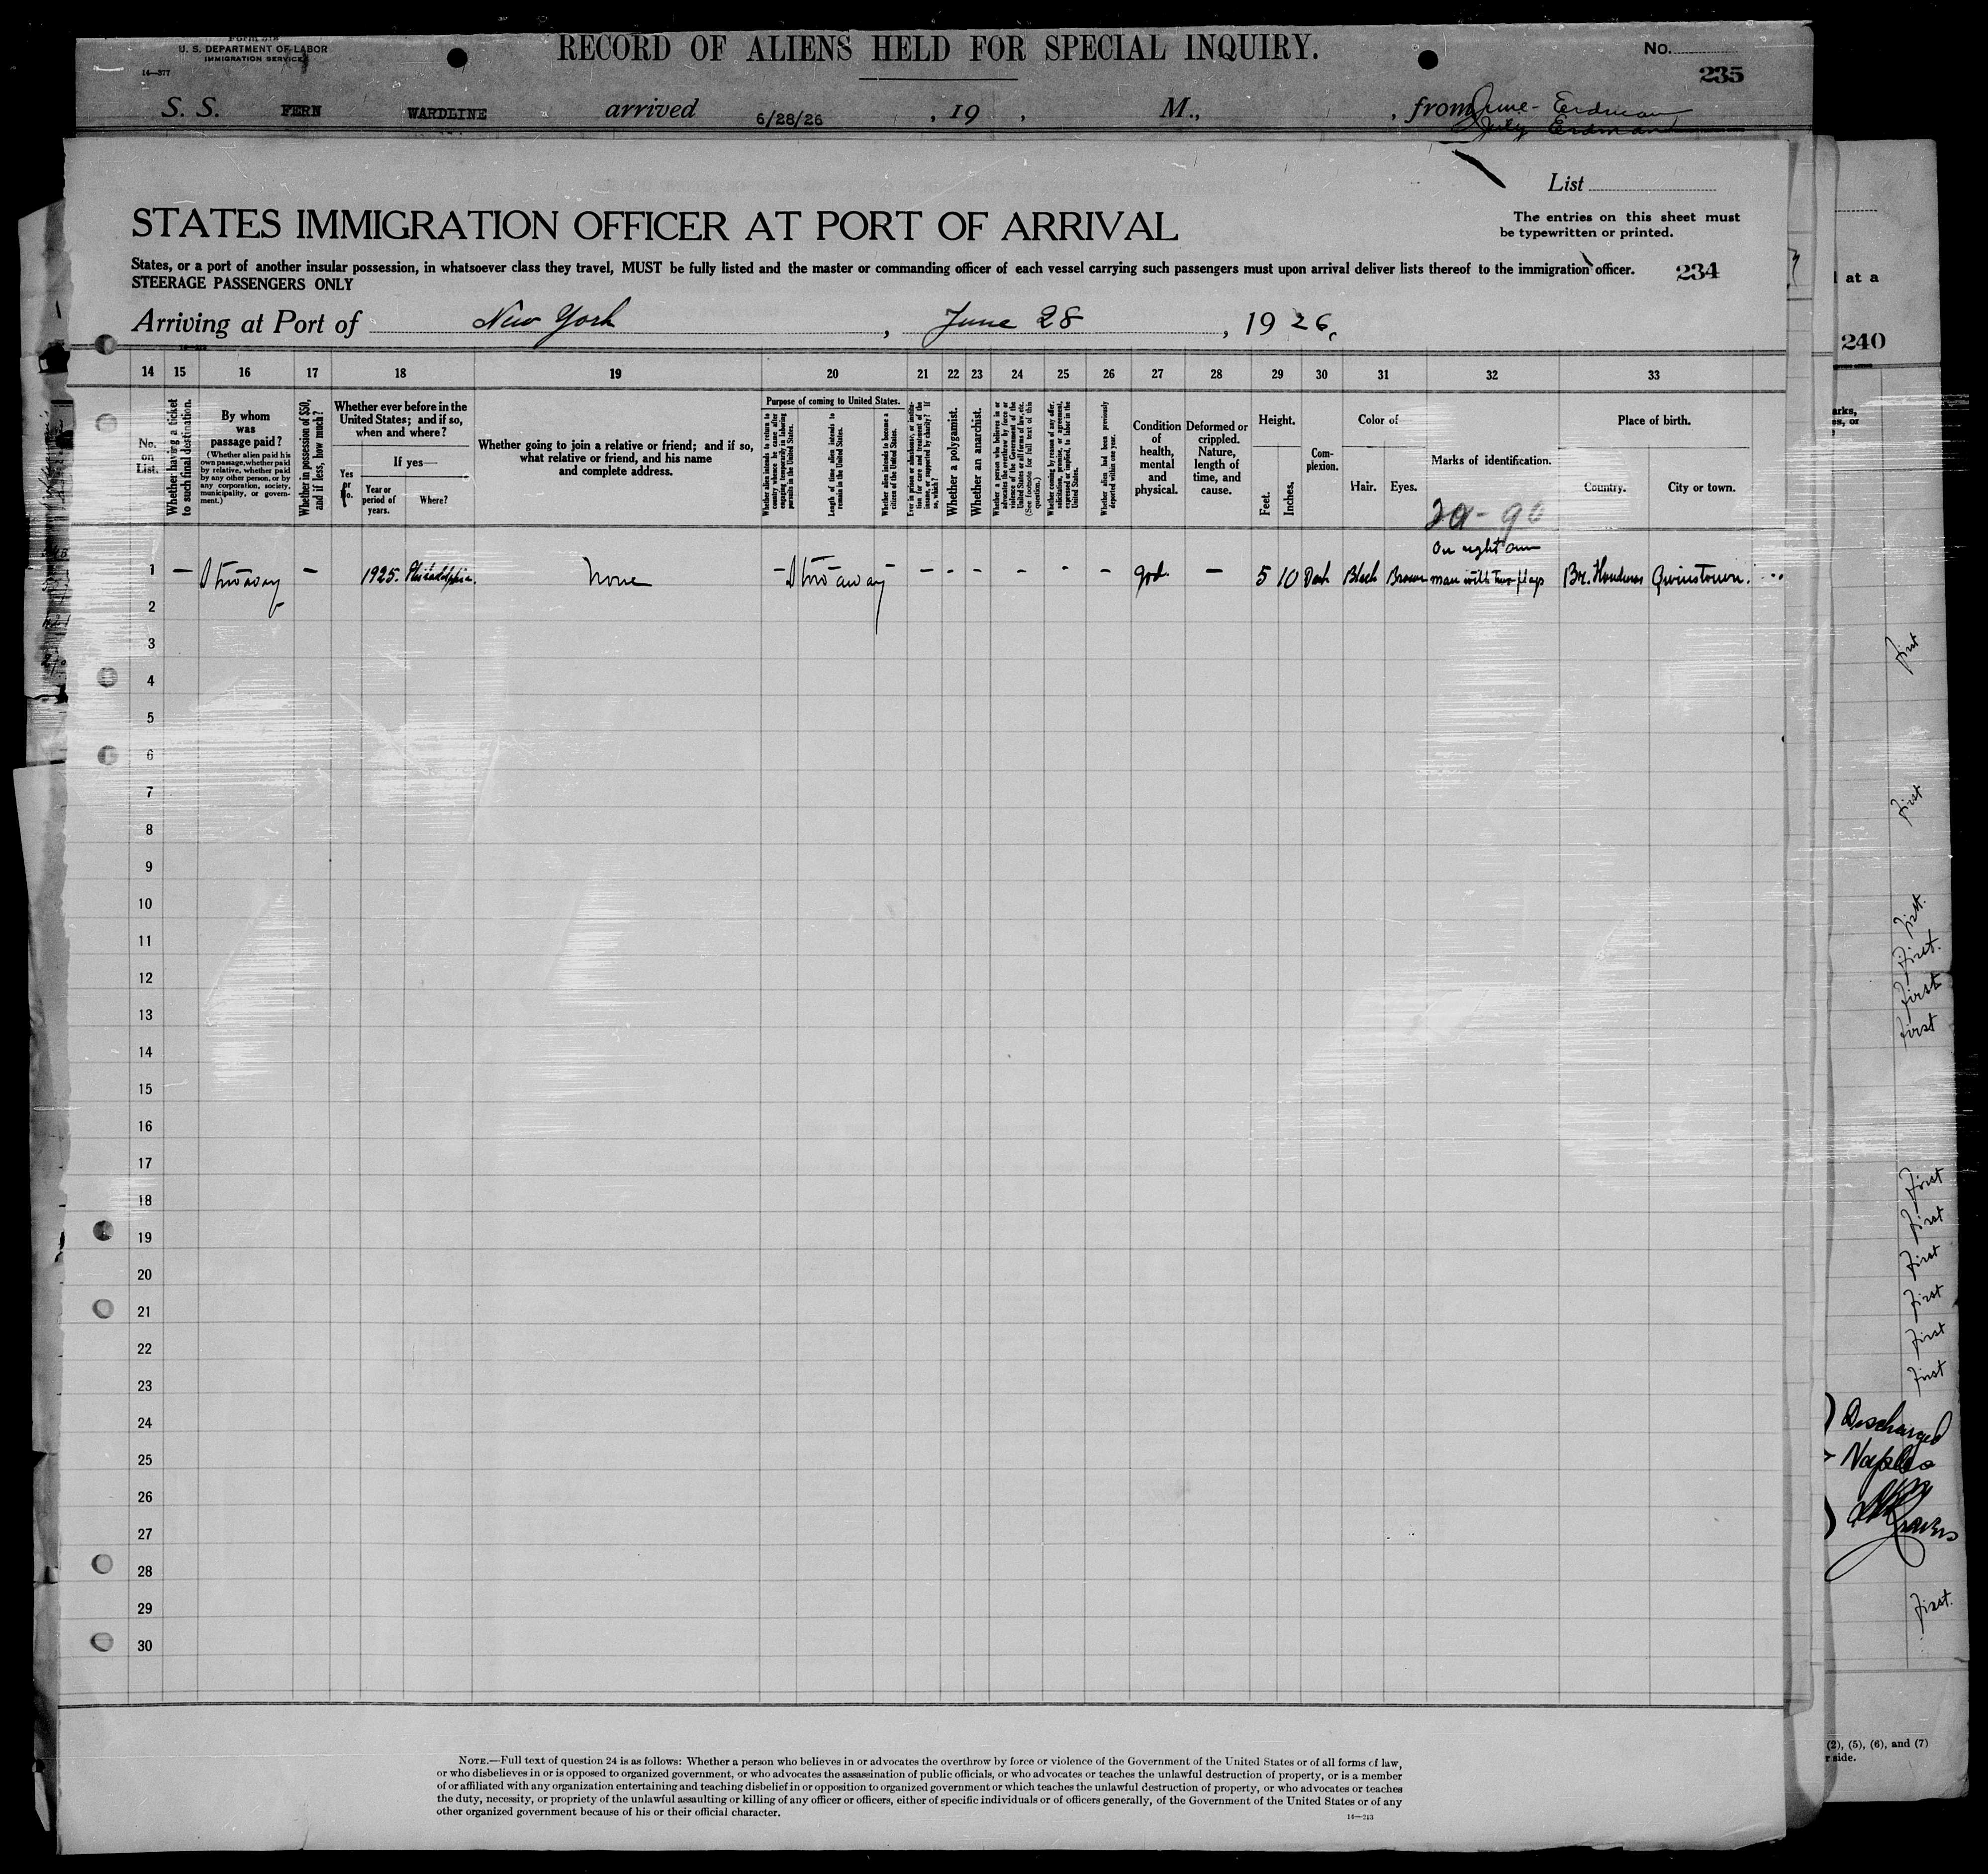 U. S. DEPARTMENT OF LABOR
IMMIGRATION SERVICE
14—377
RECORD OF ALIENS HELD FOR SPECIAL INQUIRY.
No.
235
S. S. FERN WARDLINE arrived 6/28/26 , 19 , M., , from June - Erdman
July Erdman
List
STATES IMMIGRATION OFFICER AT PORT OF ARRIVAL
The entries on this sheet must
be typewritten or printed.
States, or a port of another insular possession, in whatsoever class they travel, MUST be fully listed and the master or commanding officer of each vessel carrying such passengers must upon arrival deliver lists thereof to the immigration officer.
STEERAGE PASSENGERS ONLY
234
Arriving at Port of New York , June 28 , 19 26.
14 15 16 17 18 19 20 21 22 23 24 25 26 27 28 29 30 31 32 33
No.
on
List.
Whether having a ticket
to such final destination.
By whom
was
passage paid?
(Whether alien paid his
own passage, whether paid
by relative, whether paid
by any other person, or by
any corporation, society,
municipality, or govern-
ment.)
Whether in possession of $50,
and if less, how much?
Whether ever before in the
United States; and if so,
when and where?
Yes
or
No.
If yes—
Year or
period of
years.
Where?
Whether going to join a relative or friend; and if so,
what relative or friend, and his name
and complete address.
Purpose of coming to United States.
Whether alien intends to return to
country whence he came after
engaging temporarily in laboring
pursuits in the United States.
Length of time alien intends to
remain in the United States.
Whether alien intends to become a
citizen of the United States.
Ever in prison or almshouse, or institu-
tion for care and treatment of the
insane, or supported by charity? If
so, which?
Whether a polygamist.
Whether an anarchist.
Whether a person who believes in or
advocates the overthrow by force or
violence of the Government of the
United States or all forms of law, etc.
(See footnote for full text of this
question.)
Whether coming by reason of any offer,
solicitation, promise, or agreement,
expressed or implied, to labor in the
United States.
Whether alien had been previously
deported within one year.
Condition
of
health,
mental
and
physical.
Deformed or
crippled.
Nature,
length of
time, and
cause.
Height.
Feet.
Inches.
Com-
plexion.
Color of
Hair. Eyes.
Marks of identification.
20 - 90
Place of birth.
Country. City or town.
On right arm
1 — Stowaway — 1925. Philadelphia. None - Stowaway - - - - - - - - god. — 5 10 Dark Black Brown man with two flags Br. Honduras
2
3
4
5
6
7
8
9
10
11
12
13
14
15
16
17
18
19
20
21
22
23
24
25
26
27
28
29
30
NOTE.—Full text of question 24 is as follows: Whether a person who believes in or advocates the overthrow by force or violence of the Government of the United States or of all forms of law,
or who disbelieves in or is opposed to organized government, or who advocates the assassination of public officials, or who advocates or teaches the unlawful destruction of property, or is a member
of or affiliated with any organization entertaining and teaching disbelief in or opposition to organized government or which teaches the unlawful destruction of property, or who advocates or teaches
the duty, necessity, or propriety of the unlawful assaulting or killing of any officer or officers, either of specific individuals or of officers generally, of the Government of the United States or of any
other organized government because of his or their official character.
14—213
at a
240
first
first
first.
first.
first
first
first
first
first
first
first
first
Discharged
Naples
first.
(2), (5), (6), and (7)
side.